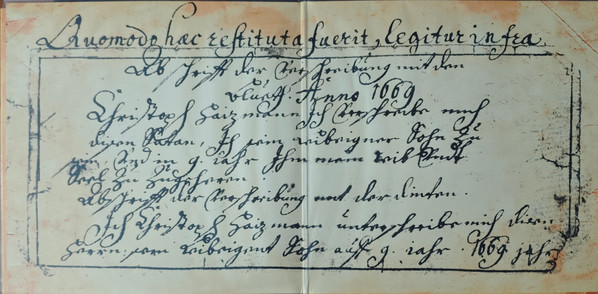 Quomodo haec restituta fuerit, legitur infra.
Abschrifft der Verschreibung mit dem
bluetf. Anno 1669
Christoph Haizmann Ich Verschreibe mich
disen Satan, Ich sein leibeigner Sohn Zu
sein, Vnd in 9. iahr Ihm mein leib Vndt
Seel Zu Zugeheren.
Abschrifft der Verschreibung mit der dinten.
Ich Christoph Haizmann unterschreibe mich disen
Herrn sein leibeigent Sohn auff 9. iahr. 1669 jahr